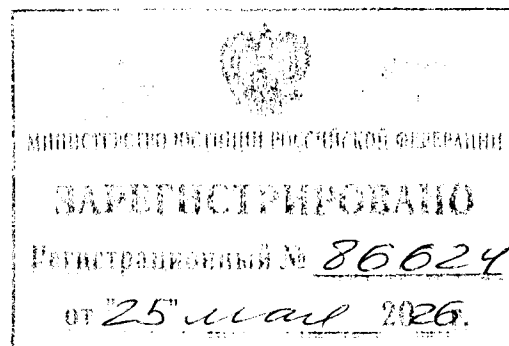 МИНИСТЕРСТВО ЮСТИЦИИ РОССИЙСКОЙ ФЕДЕРАЦИИ
ЗАРЕГИСТРИРОВАНО
Регистрационный № 86624
от "25" мая 2026г.